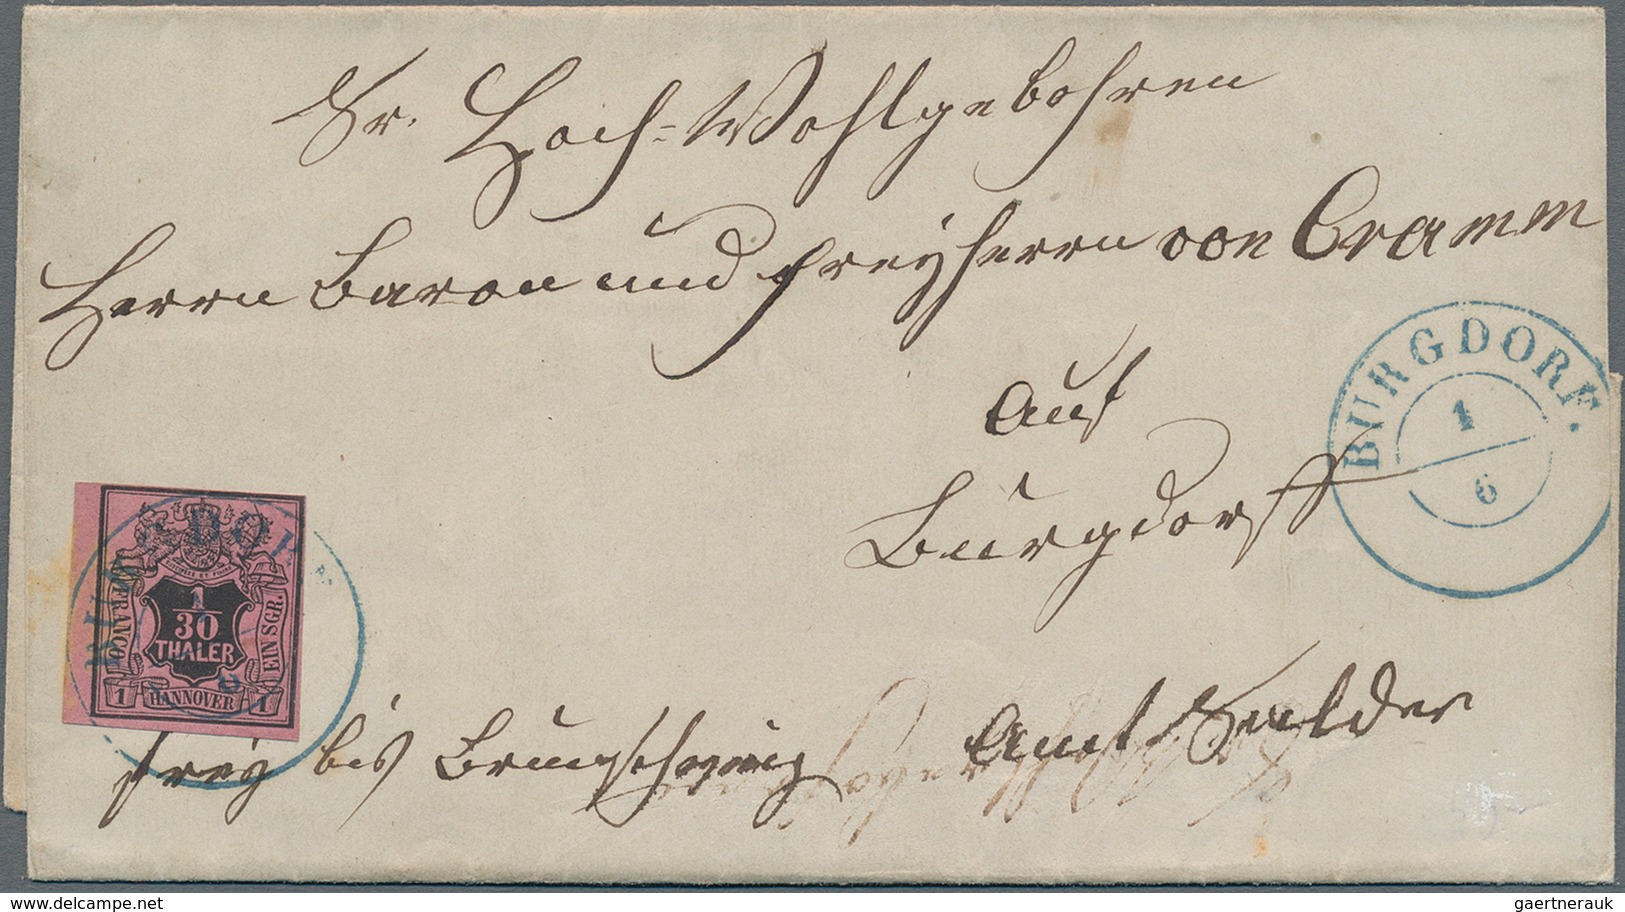 Sr. Hoch-Wohlgebohren
Herrn Baron und Freyherrn von Cramm
Auf
Burgdorff
Amt Salder
frey bis Braunschweig
BURGDORF.
1
6
BURGDORF
6
1
30
THALER
FRANCO
EIN SGR.
1 HANNOVER 1
delcampe.net
gaertnerauk